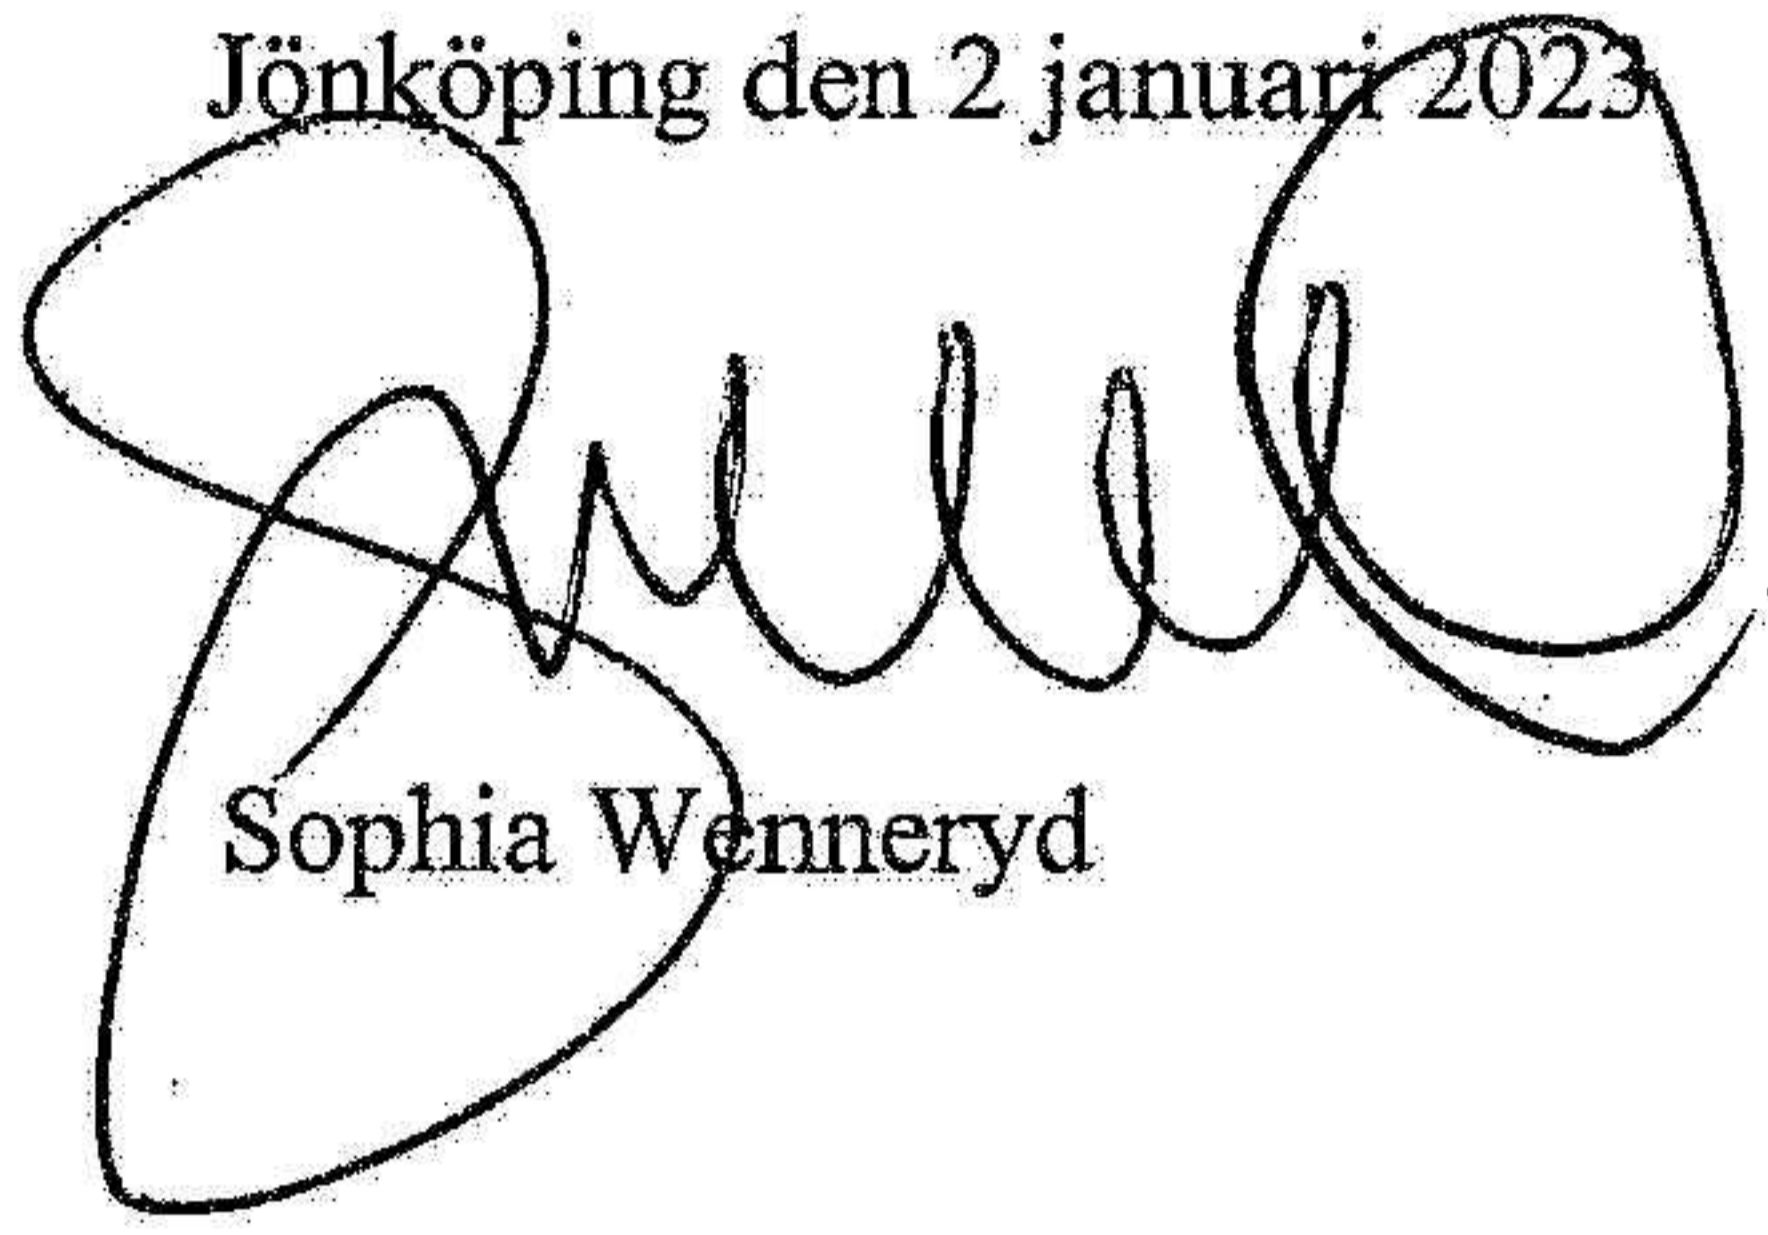 Jönköping den 2 januari 2023
Sophia Wenneryd